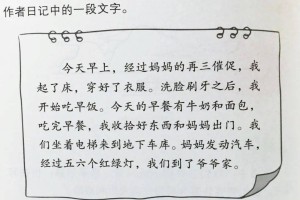 作者日记中的一段文字。
今天早上，经过妈妈的再三催促，我
起了床，穿好了衣服。洗脸刷牙之后，我
开始吃早饭。今天的早餐有牛奶和面包，
吃完早餐，我收拾好东西和妈妈出门。我
们坐着电梯来到地下车库。妈妈发动汽车，
经过五六个红绿灯，我们到了爷爷家。